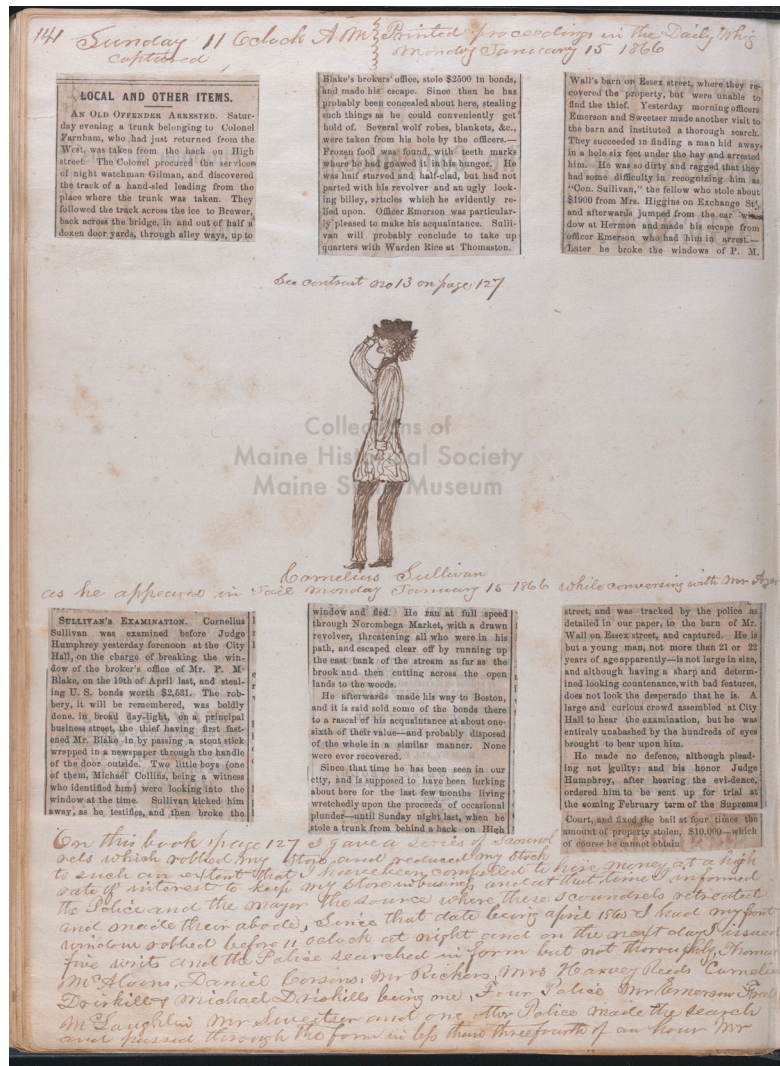 141 Sunday 11 Oclock A M Printed proceedings in the Daily Whig
captured Monday January 15 1866
LOCAL AND OTHER ITEMS.
AN OLD OFFENDER ARRESTED. Satur-
day evening a trunk belonging to Colonel
Farnham, who had just returned from the
West, was taken from the hack on High
street. The Colonel procured the services
of night watchman Gilman, and discovered
the track of a hand-sled leading from the
place where the trunk was taken. They
followed the track across the ice to Brewer,
back across the bridge, in and out of half a
dozen door yards, through alley ways, up to
Blake's brokers' office, stole $2500 in bonds,
and made his escape. Since then he has
probably been concealed about here, stealing
such things as he could conveniently get
hold of. Several wolf robes, blankets, &c.,
were taken from his hole by the officers.—
Frozen food was found, with teeth marks
where he had gnawed it in his hunger. He
was half starved and half-clad, but had not
parted with his revolver and an ugly look-
ing billey, articles which he evidently re-
lied upon. Officer Emerson was particular-
ly pleased to make his acquaintance. Sulli-
van will probably conclude to take up
quarters with Warden Rice at Thomaston.
Wall's barn on Essex street, where they re-
covered the property, but were unable to
find the thief. Yesterday morning officers
Emerson and Sweetser made another visit to
the barn and instituted a thorough search.
They succeeded in finding a man hid away
in a hole six feet under the hay and arrested
him. He was so dirty and ragged that they
had some difficulty in recognizing him as
"Con. Sullivan," the fellow who stole about
$1900 from Mrs. Higgins on Exchange St.,
and afterwards jumped from the car win-
dow at Hermon and made his escape from
officer Emerson who had him in arrest.—
Later he broke the windows of P. M.
See contrast no 13 on page 127
Collections of
Maine Historical Society
Maine State Museum
Cornelius Sullivan
as he appeared in Jail Monday January 15 1866 while conversing with Mr
SULLIVAN'S EXAMINATION. Cornelius
Sullivan was examined before Judge
Humphrey yesterday forenoon at the City
Hall, on the charge of breaking the win-
dow of the broker's office of Mr. P. M.
Blake, on the 19th of April last, and steal-
ing U. S. bonds worth $2,531. The rob-
bery, it will be remembered, was boldly
done, in broad day-light, on a principal
business street, the thief having first fast-
ened Mr. Blake in by passing a stout stick
wrapped in a newspaper through the handle
of the door outside. Two little boys (one
of them, Michael Collins, being a witness
who identified him) were looking into the
window at the time. Sullivan kicked him
away, as he testifies, and then broke the
window and fled. He ran at full speed
through Norombega Market, with a drawn
revolver, threatening all who were in his
path, and escaped clear off by running up
the east bank of the stream as far as the
brook and then cutting across the open
lands to the woods.
He afterwards made his way to Boston,
and it is said sold some of the bonds there
to a rascal of his acquaintance at about one-
sixth of their value—and probably disposed
of the whole in a similar manner. None
were ever recovered.
Since that time he has been seen in our
city, and is supposed to have been lurking
about here for the last few months living
wretchedly upon the proceeds of occasional
plunder—until Sunday night last, when he
stole a trunk from behind a hack on High
street, and was tracked by the police as
detailed in our paper, to the barn of Mr.
Wall on Essex street, and captured. He is
but a young man, not more than 21 or 22
years of age apparently—is not large in size,
and although having a sharp and determ-
ined looking countenance, with bad features,
does not look the desperado that he is. A
large and curious crowd assembled at City
Hall to hear the examination, but he was
entirely unabashed by the hundreds of eyes
brought to bear upon him.
He made no defence, although plead-
ing not guilty: and his honor Judge
Humphrey, after hearing the evidence,
ordered him to be sent up for trial at
the coming February term of the Supreme
Court, and fixed the bail at four times the
amount of property stolen, $10,000—which
of course he cannot obtain
On this book page 127 I gave a series of Scound
rels which robbed my Store and reduced my Stock
to such an extent that I have been compelled to hire money at a high
rate of interest to keep my Store in business and at that time I informed
the Police and the mayor the source where these scoundrels retreated
and made their abode, Since that date being april 1865 I had my front
window robbed before 11 oclock at night and on the next day I issued
five writs and the Police searched in form but not thoroughly, Thomas
Daniel Mr Mrs Harvey Reids Cornelius
Driskills Michael Driskills being one, Four Police Mr Emerson
McLaughlin Mr Sweetser and one other Police made the search
and passed through the form in less than three fourth of an hour Mr